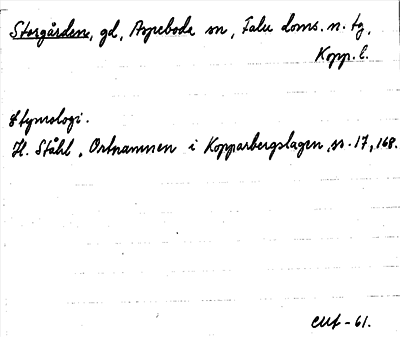 Storgården, gd, Aspeboda sn, Falu doms. n. tg,
Kopp. l.
Etymologi.
H. Ståhl, Ortnamnen i Kopparbergslagen, s. 17, 168.
-61.